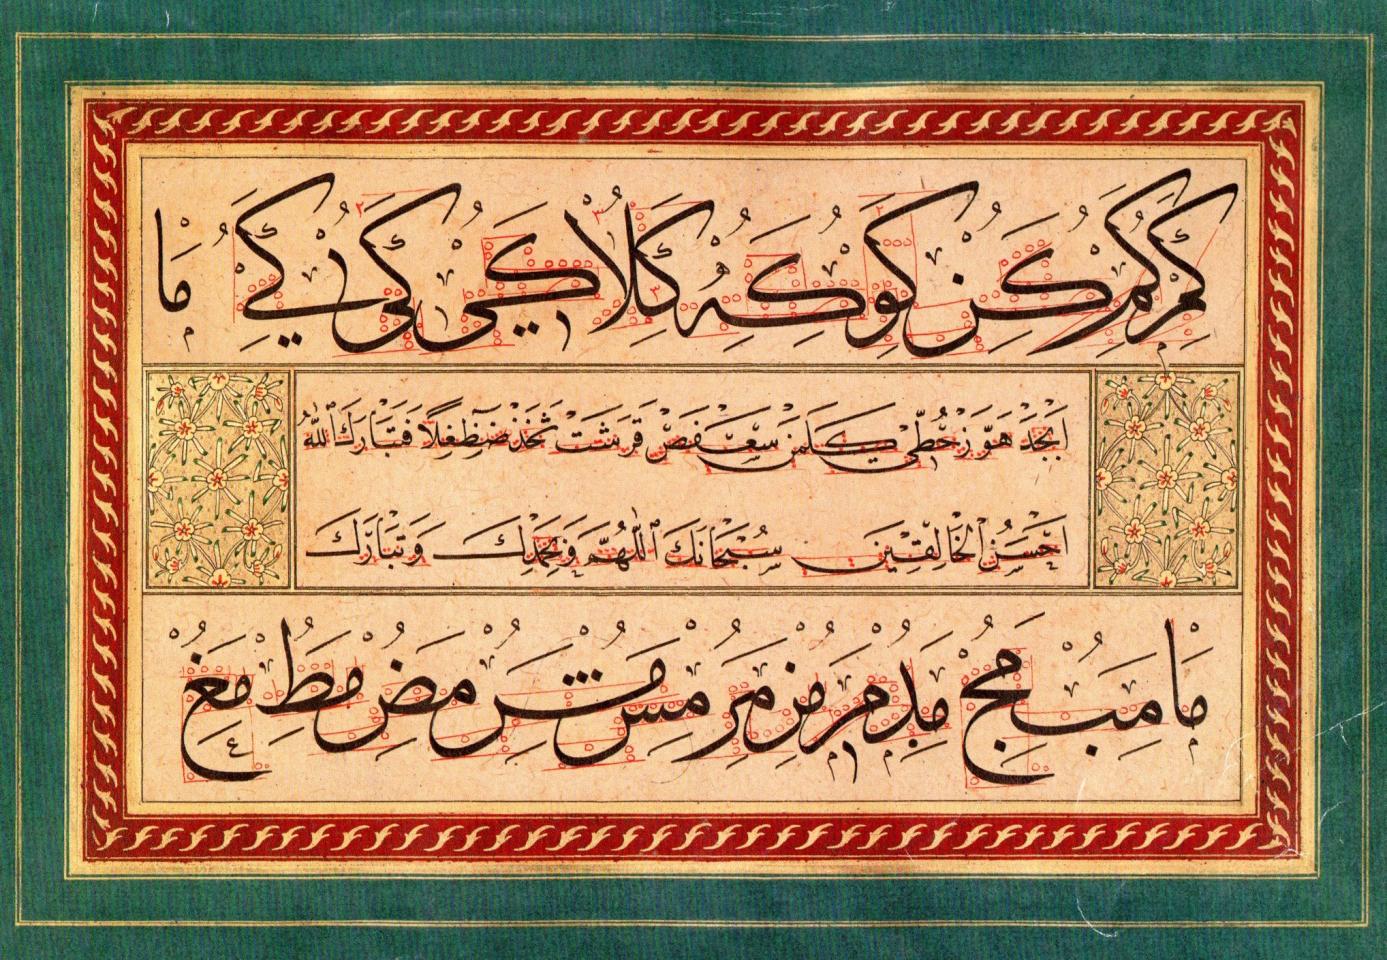 كر كمر كن كو كه كلا كى كى كي ما
ابجد هوز حطي كلمن سعفص قرشت ثخذ ضظغلا فتبارك الله
احسن الخالقين سبحانك اللهم وبحمدك وتبارك
ما مب مج مد مر مز مر مس مش مض مط مغ